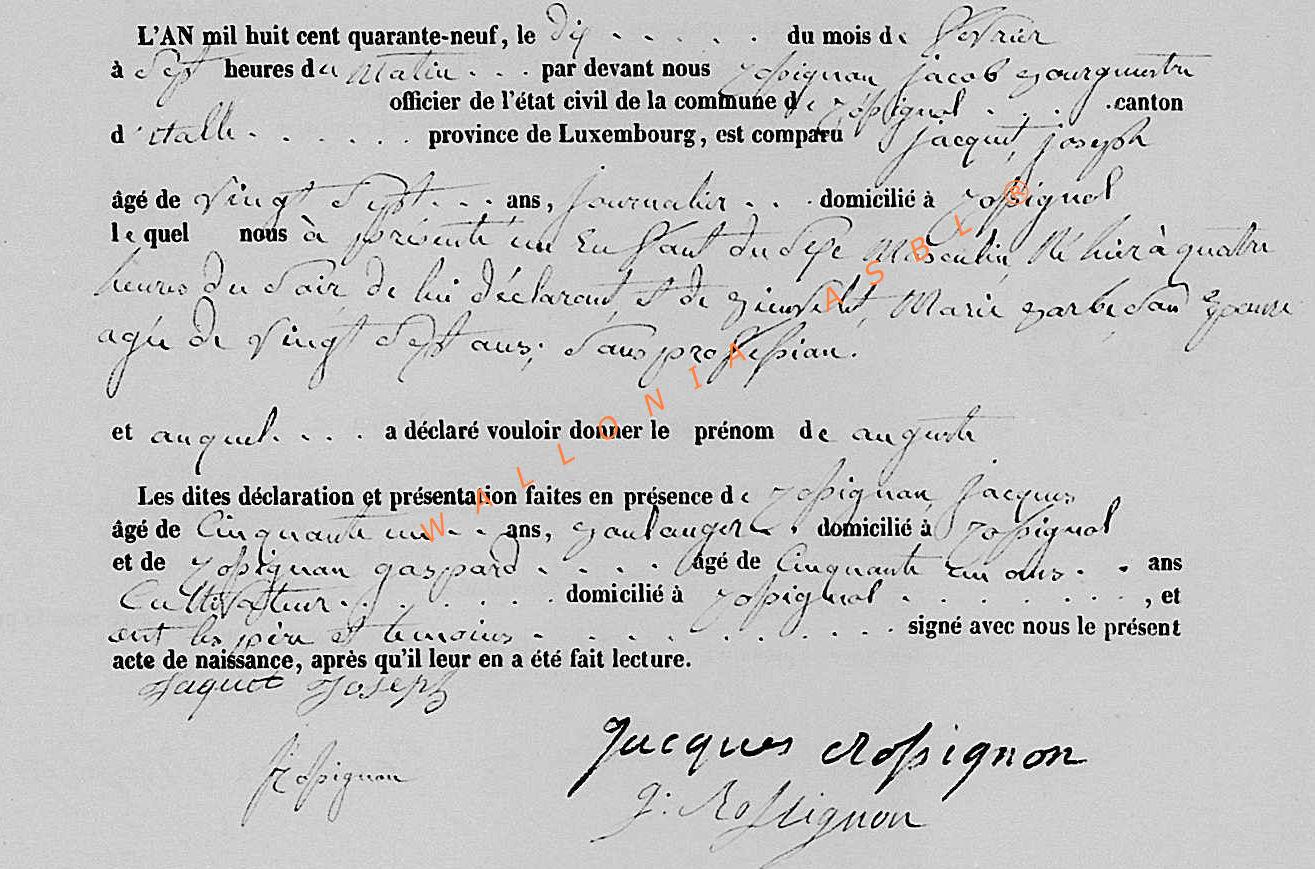 L'AN mil huit cent quarante-neuf, le dix . . . . . du mois de fevrier
à Sept heures du Matin . . . par devant nous Rossignon jacob Bourgmestre
officier de l'état civil de la commune de Rossignol . . . . canton
d'étalle . . . . . . province de Luxembourg, est comparu jacquet, joseph
âgé de vingt Sept . . . ans, journalier . . . domicilié à Rossignol
lequel nous à présenté un Enfant du Sexe Masculin, Né hier à quatre
heures du Soir, de lui déclarant, et de Marie Barbe, Son Epouse
agée de vingt Sept ans, Sans profession.
et auquel . . . . a déclaré vouloir donner le prénom de auguste
Les dites déclaration et présentation faites en présence de Rossignon, jacques
âgé de Cinquante un . . ans, Boulanger . domicilié à Rossignol
et de Rossignon gaspard . . . . . âgé de Cinquante un ans . . ans
Cultivateur . . . . . . domicilié à Rossignol . . . . . . . . , et
ont les père et temoins . . . . . . . . . . signé avec nous le présent
acte de naissance, après qu'il leur en a été fait lecture.
Jaquet Joseph
Jacques Rossignon
Rossignon
g: Rossignon
WALLONIA ASBL ®